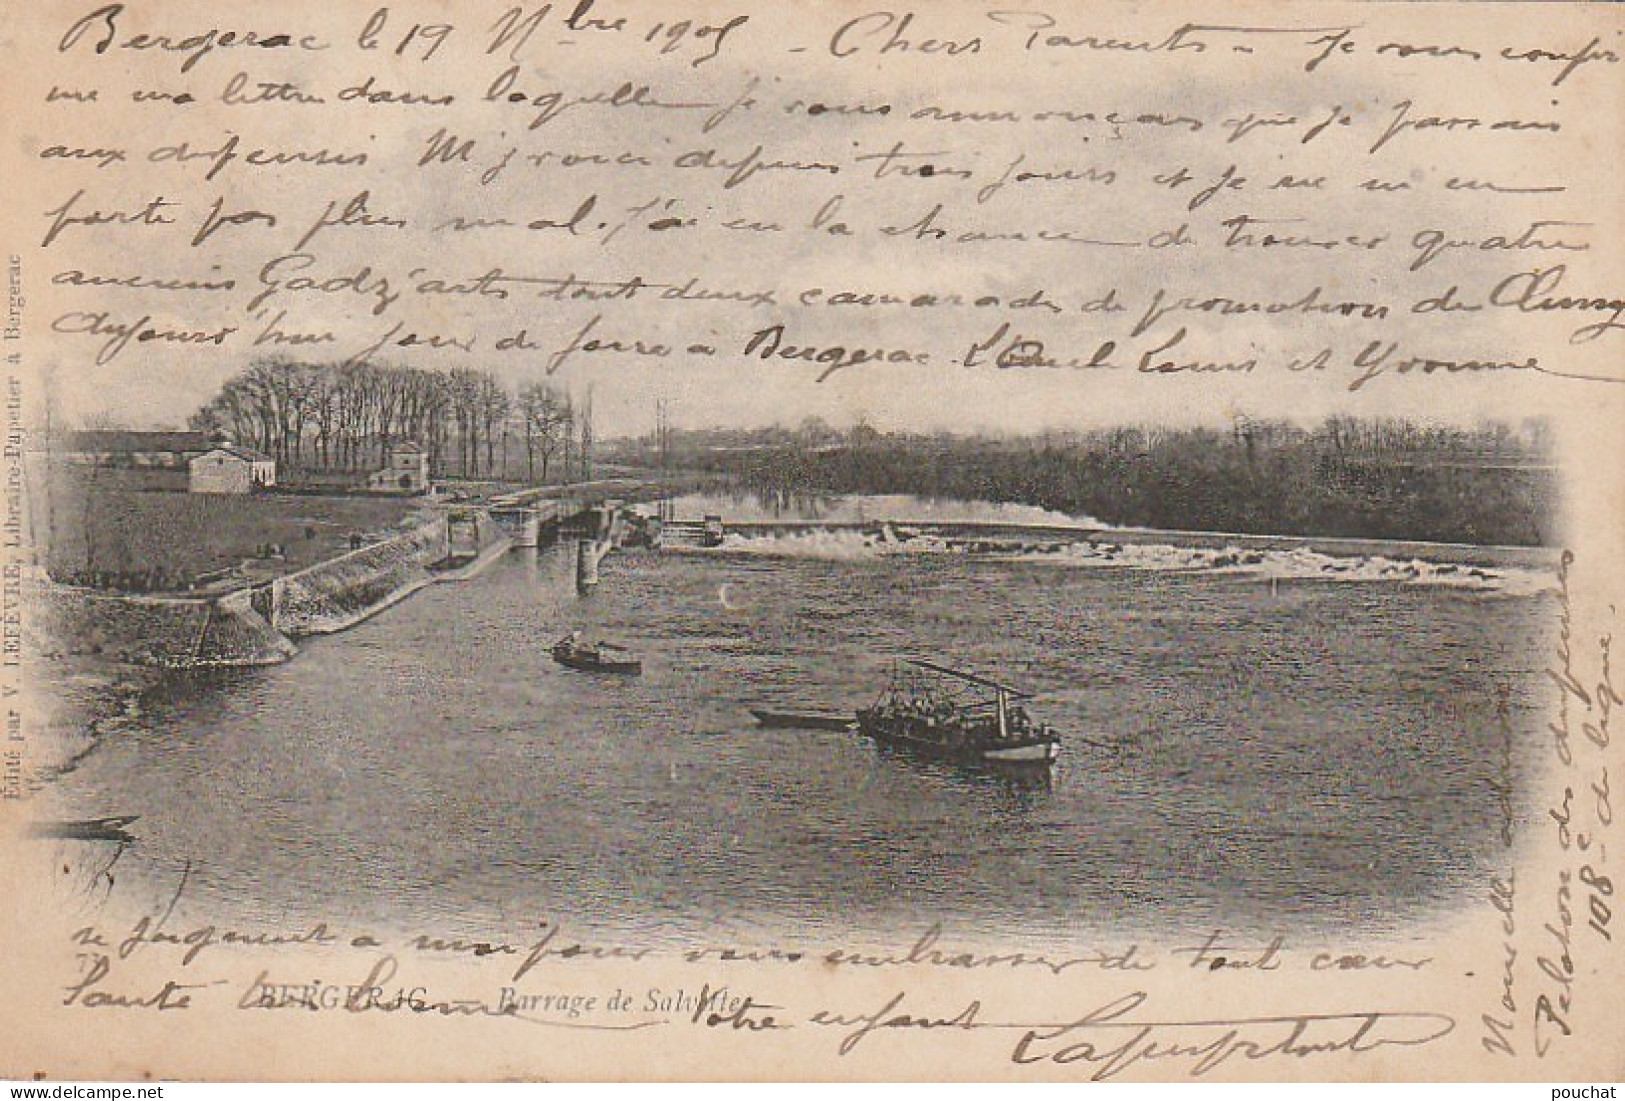 Bergerac le 19 Nbre 1905 - Chers Parents - Je vous confir
me ma lettre dans laquelle je vous annonçais que je passais
aux dispensés M'y voici depuis trois jours et je ne m'en
porte pas plus mal. J'ai eu la chance de trouver quatre
anciens Gadz'arts dont deux camarades de promotion de Cluny
Aujourd'hui jour de foire à Bergerac. L'Oncle Louis et Yvonne
se joignent à moi pour vous embrasser de tout cœur
Santé très bonne Votre enfant
77
BERGERAC. - Barrage de Salvette
Nouvelle adresse
Peloton des dispensés
108e de ligne.
Édité par V. LEFÈVRE, Libraire-Papetier à Bergerac
delcampe.net
pouchat